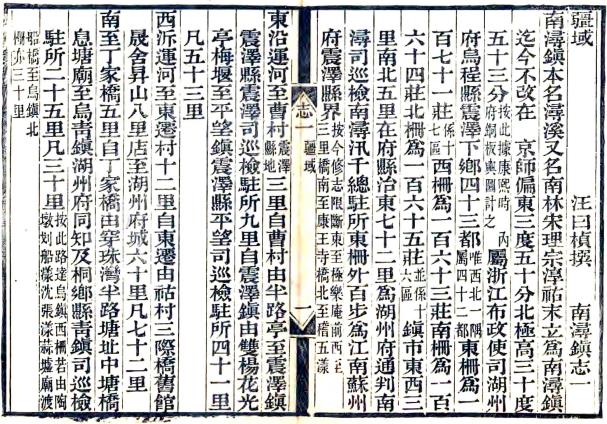 疆域　汪曰楨撰　南潯鎮志一
南潯鎮本名潯溪又名南林宋理宗淳祐末立為南潯鎮
迄今不改在　京師偏東三度五十分北極高三十度
五十三分按此據康熙時內府銅板輿圖計之屬浙江布政使司湖州
府烏程縣震澤下鄉四十三都唯西北一隅屬四十二都東柵為一
百七十一莊係十七區西柵為一百六十三莊南柵為一百
六十四莊北柵為一百六十五莊並係十六區鎮市東西三
里南北五里在府縣治東七十二里為湖州府通判南
潯司巡檢南潯汛千總駐所東柵外百步為江南蘇州
府震澤縣界按今修志限斷東至極樂庵前西至三里橋南至康王寺橋北至稽五漾
志一　疆域　一
東沿運河至曹村震澤縣地三里自曹村由半路亭至震澤鎮
震澤縣震澤司巡檢駐所九里自震澤鎮由雙楊花光
亭梅堰至平望鎮震澤縣平望司巡檢駐所四十一里
凡五十三里
西泝運河至東遷村十二里自東遷由祜村三際橋舊館
晟舍昇山八里店至湖州府城六十里凡七十二里
南至丁家橋五里自丁家橋由穿珠灣半路塘址中塘橋
息塘廟至烏青鎮湖州府同知及桐鄉縣青鎮司巡檢
駐所二十五里凡三十里按此路達烏鎮西柵若由陶墩划船漾沈張漾蒜墟廟渡
船橋至烏鎮北柵亦三十里